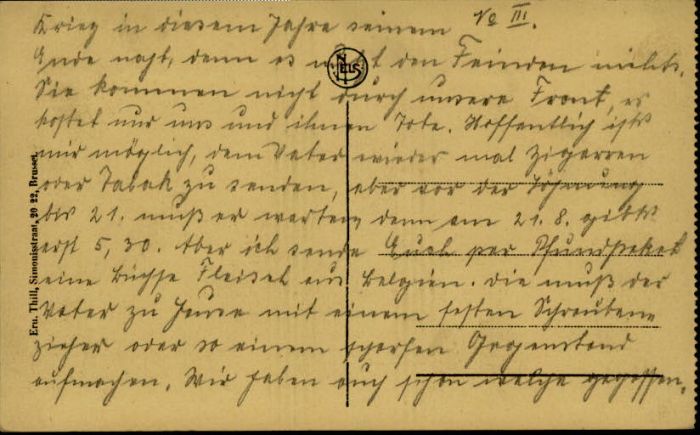 No III.
Krieg in diesem Jahre seinem
Ende naht, denn es nützt den Feinden nichts.
Sie kommen nicht durch unsere Front, es
kostet nur uns und ihnen Tote. Hoffentlich ists
mir möglich, dem Vater wieder mal Zigarren
oder Tabak zu senden, aber vor der Löhnung
bis 21. muß er warten, denn am 21.8. gibts
erst 5,30. Aber ich sende Euch per Pfundpaket
eine Büchse Fleisch aus Belgien. Die muß der
Vater zu Hause mit einem festen Schrauben-
zieher oder so einem scharfen Gegenstand
aufmachen. Wir haben auch schon welche gegessen.
NELS
Ern. Thill, Simonisstraat, 20 22, Brussel.